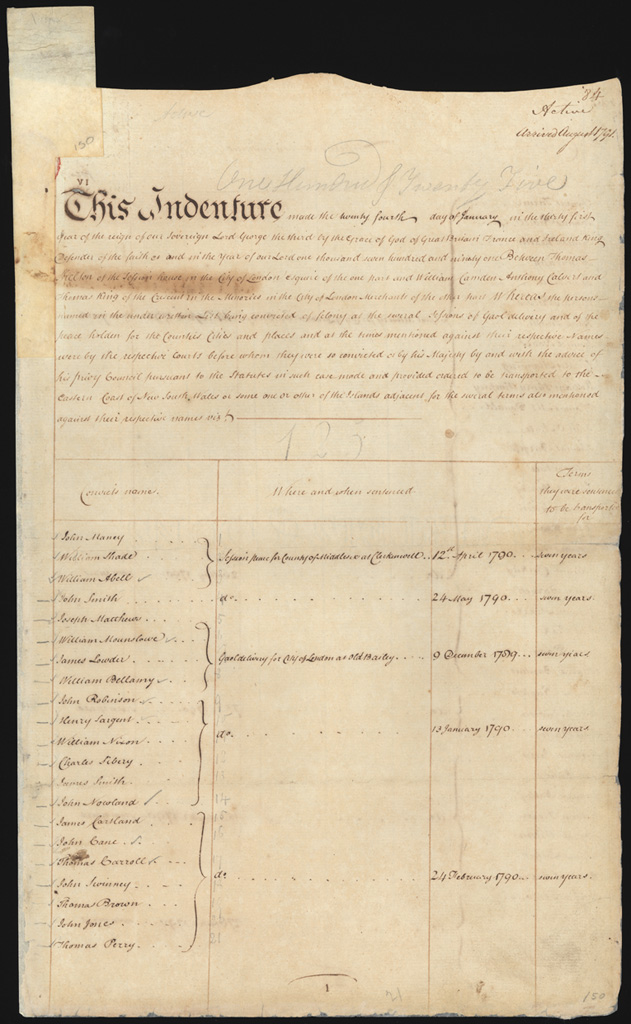 84
Active
arrived August 1791.
150
One Hundred & Twenty Five
VI
This Indenture made the twenty fourth day of January in the thirty first
Year of the reign of our Sovereign Lord George the third by the Grace of God of Great Britain France and Ireland King
Defender of the faith &c and in the year of our Lord one thousand seven hundred and ninety one Between Thomas
Shelton of the Session house in the City of London Esquire of the one part and William Camden Anthony Calvert and
Thomas King of the Crescent in the Minories in the City of London Merchants of the other part Whereas the persons
named in the under written List being convicted of felony at the several Sessions of Gaol delivery and of the
peace holden for the Counties Cities and places and at the times mentioned against their respective Names
were by the respective Courts before whom they were so convicted or by his Majesty by and with the advice of
his privy Council pursuant to the Statutes in such case made and provided ordered to be transported to the
Eastern Coast of New South Wales or some one or other of the Islands adjacent for the several terms also mentioned
against their respective names vizt
125
Convicts names. Where and when sentenced Terms
they were sentenced
to be transported
for
John Maney
William Shade Session peace for County of Middlesex at Clerkenwell 12th April 1790 seven years
William Abell
John Smith do. 24 May 1790 seven years.
Joseph Matthews
William Mounslowe
James Lowder Gaol delivery for City of London at Old Bailey 9 December 1789 seven years
William Bellamy
John Robinson
Henry Sargent
William Nixon do. 13 January 1790 seven years.
Charles
James Smith
John Nowland 14
James Cartland
John Cane
Thomas Carroll
John Swinney do. 24 February 1790 seven years.
Thomas Brown
John Jones
Thomas Perry
1
150